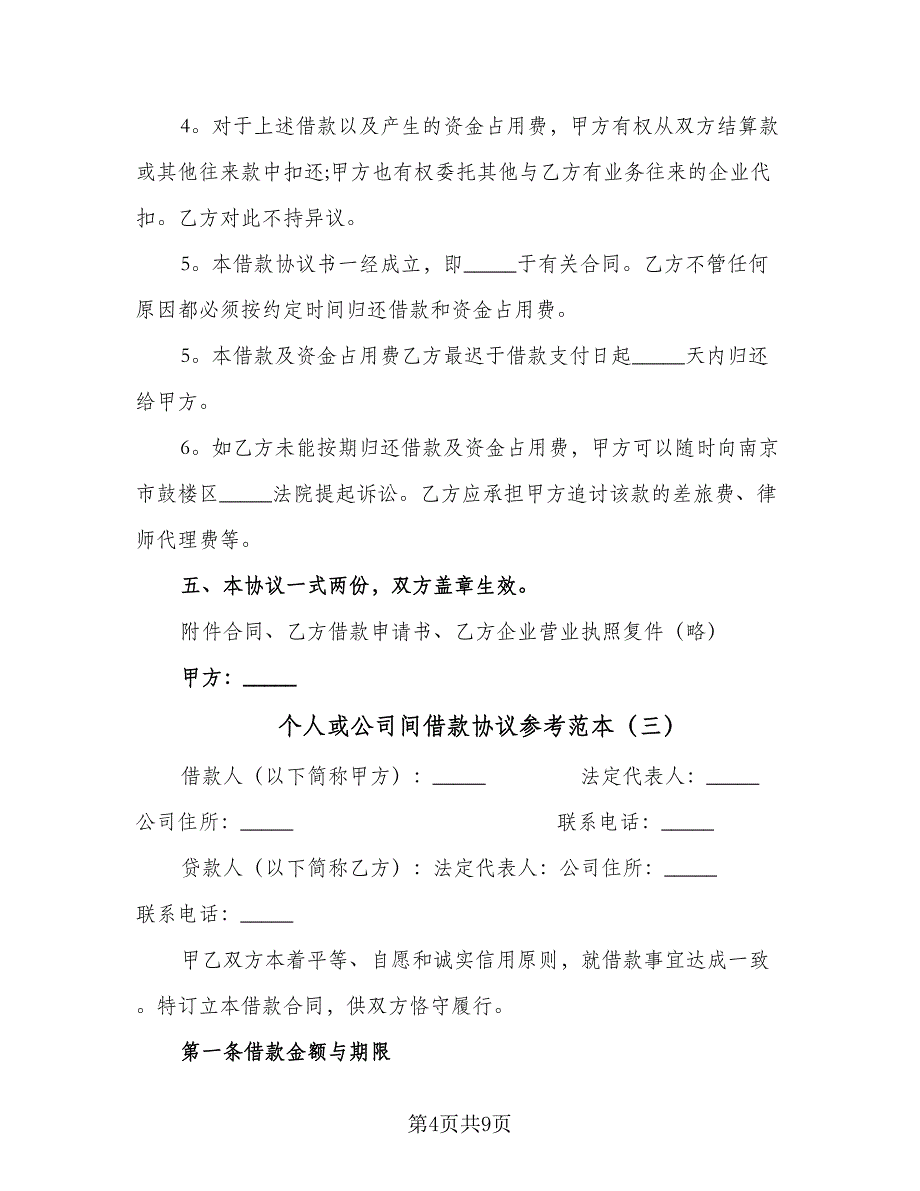 4。对于上述借款以及产生的资金占用费，甲方有权从双方结算款
或其他往来款中扣还;甲方也有权委托其他与乙方有业务往来的企业代
扣。乙方对此不持异议。
5。本借款协议书一经成立，即_____于有关合同。乙方不管任何
原因都必须按约定时间归还借款和资金占用费。
5。本借款及资金占用费乙方最迟于借款支付日起_____天内归还
给甲方。
6。如乙方未能按期归还借款及资金占用费，甲方可以随时向南京
市鼓楼区_____法院提起诉讼。乙方应承担甲方追讨该款的差旅费、律
师代理费等。
五、本协议一式两份，双方盖章生效。
附件合同、乙方借款申请书、乙方企业营业执照复件（略）
甲方：_____
个人或公司间借款协议参考范本（三）
借款人（以下简称甲方）：_____ 法定代表人：_____
公司住所：_____ 联系电话：_____
贷款人（以下简称乙方）：法定代表人：公司住所：_____
联系电话：_____
甲乙双方本着平等、自愿和诚实信用原则，就借款事宜达成一致
。特订立本借款合同，供双方恪守履行。
第一条借款金额与期限
第4页共9页